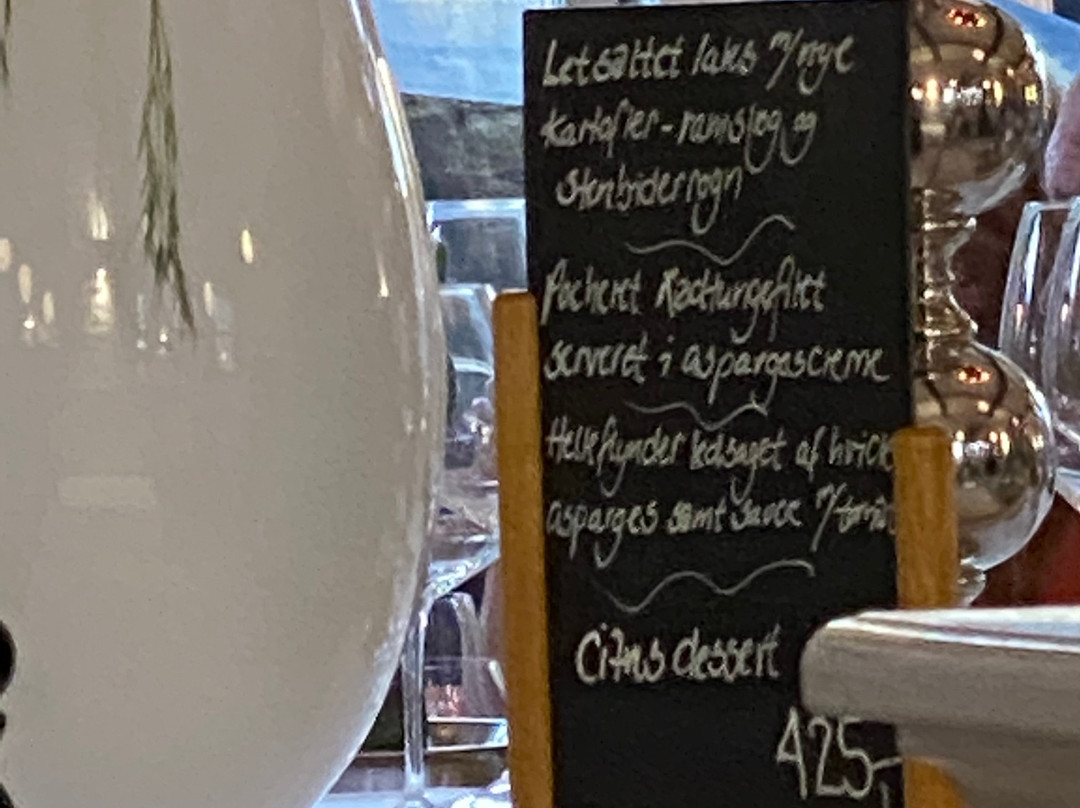 Letsaltet laks m/nye
kartofler - ramsløg og
stenbiderrogn
Pocheret Rødtungefilet
serveret i aspargescreme
Helleflynder ledsaget af hvide
asparges samt sauce m/tomat
Citrus dessert
425,-